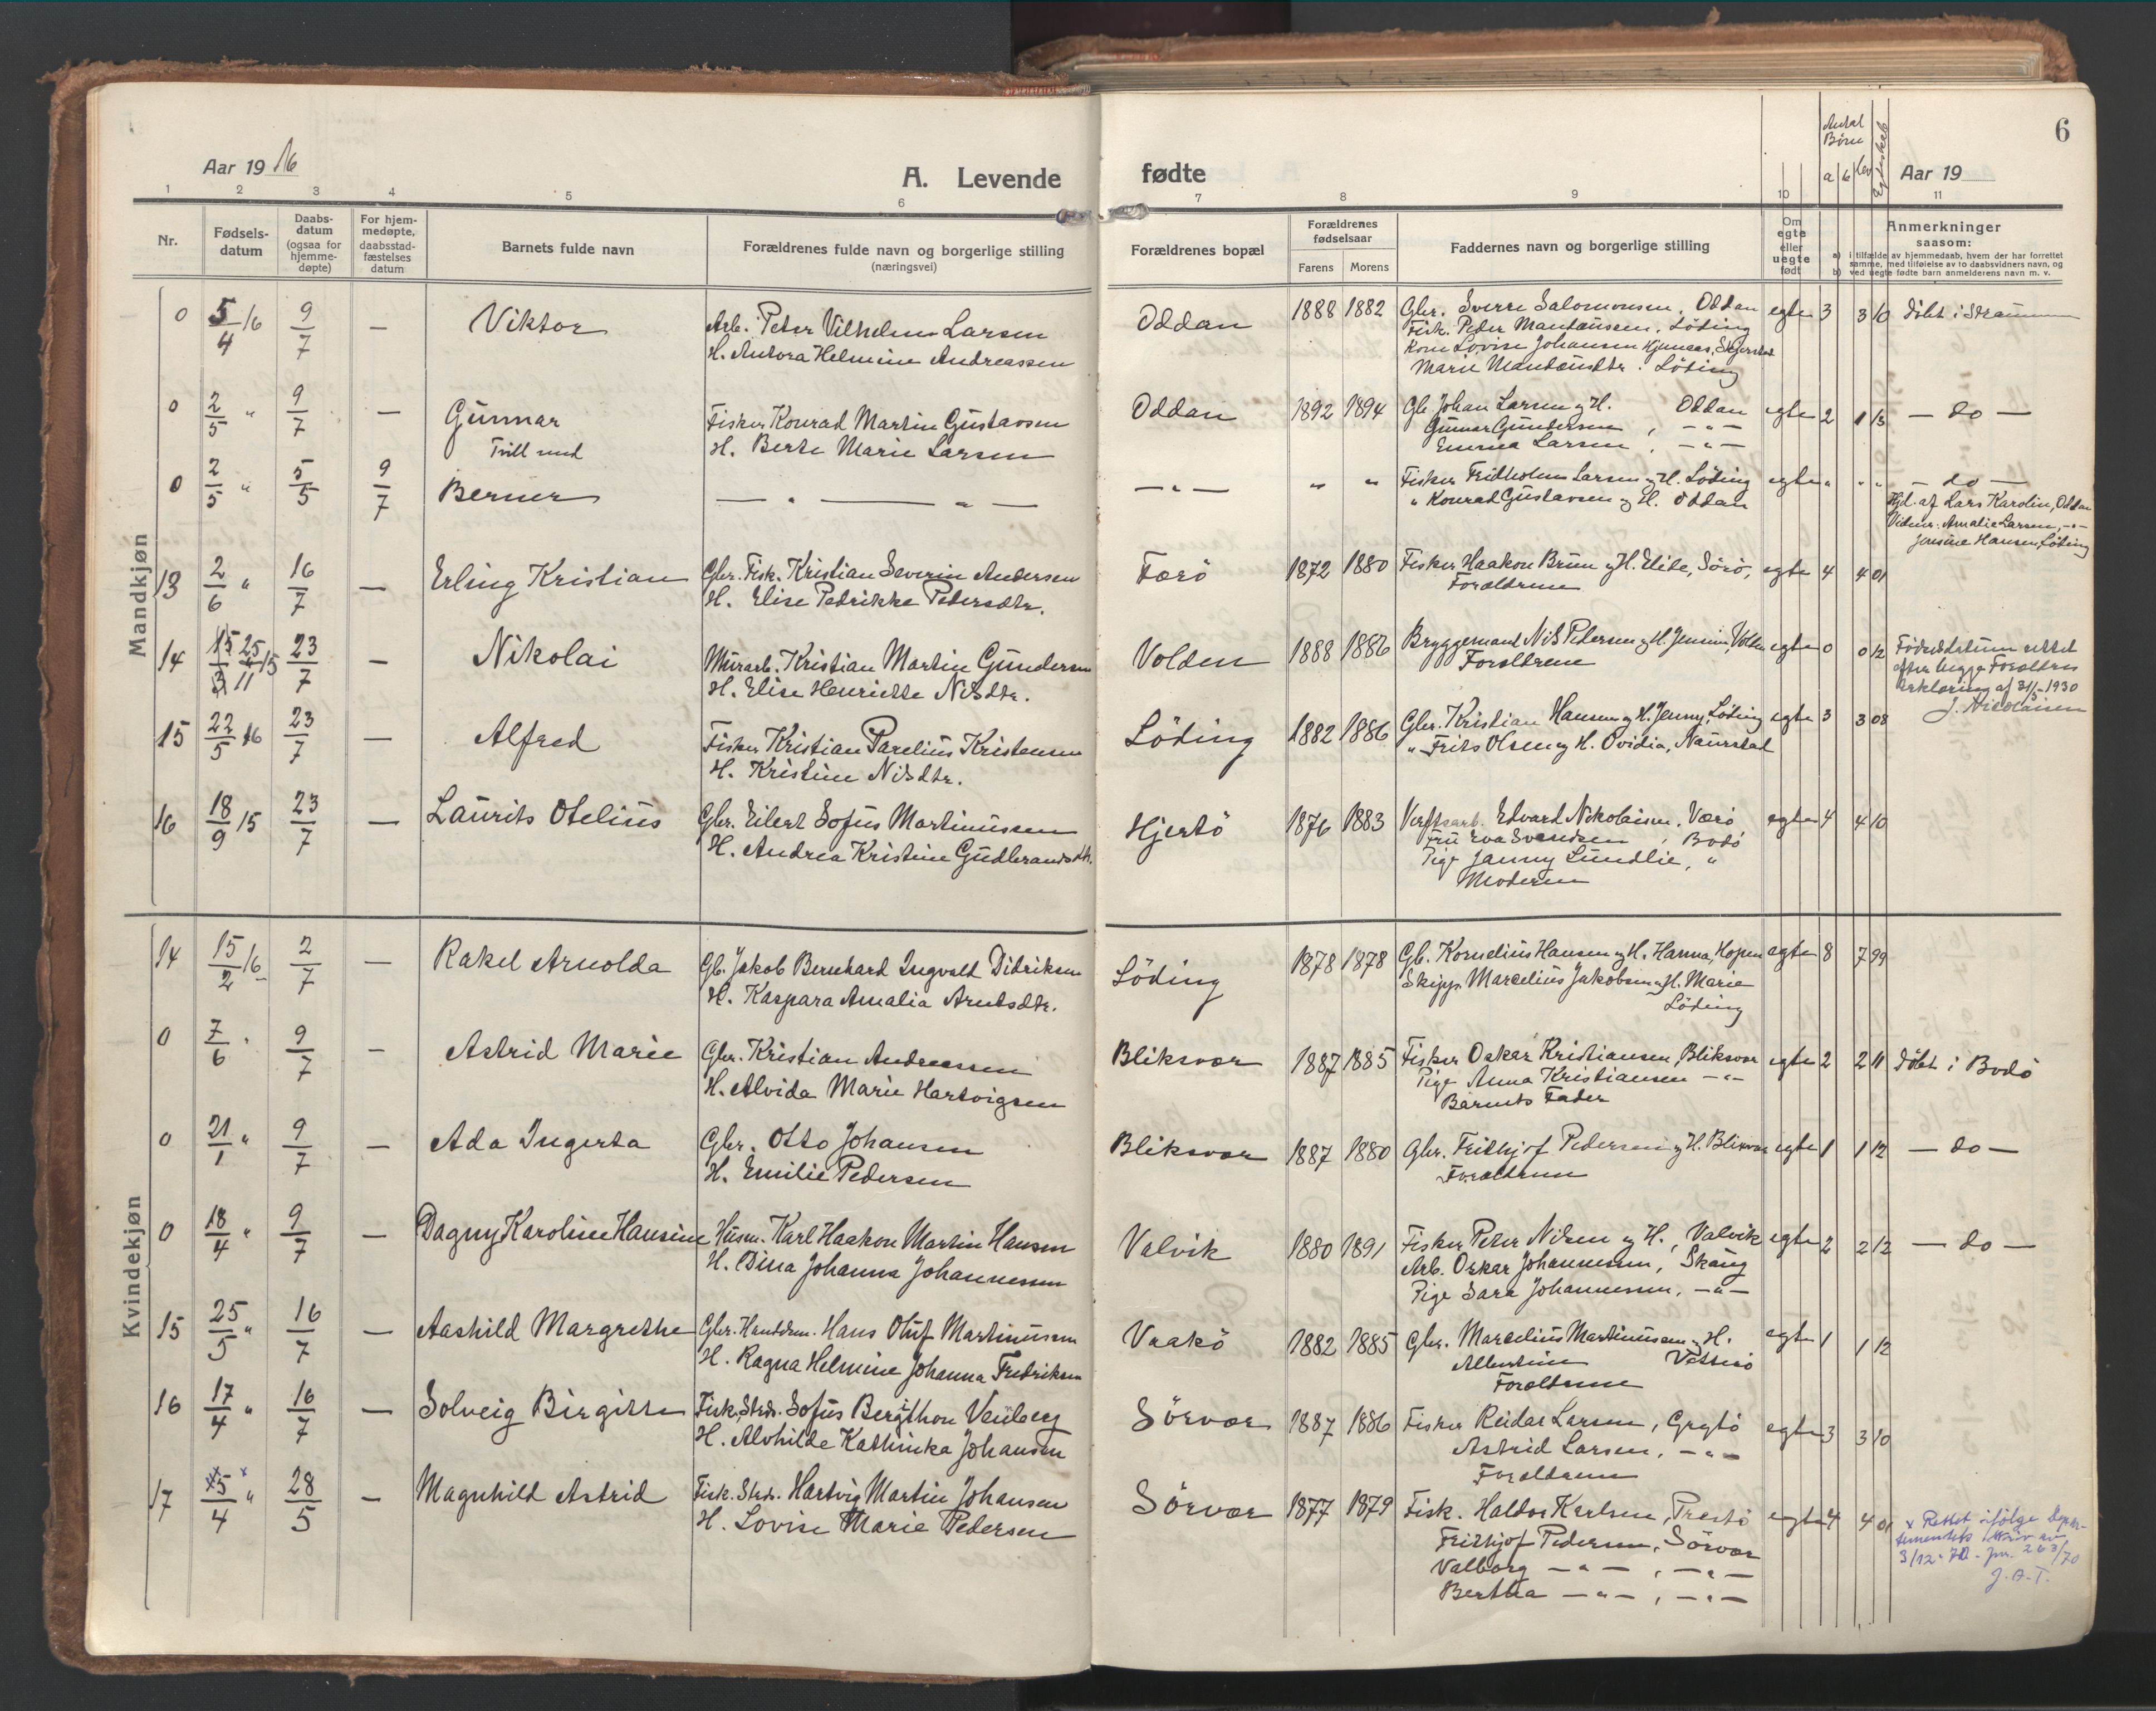 Aar 1916
A. Levende
fødte
Antal Børn
a b lev
Egteskab
Aar 19
6
1 2 3 4 5 6 7 8 9 10 11
Nr.
Fødsels-datum
Daabs-datum (ogsaa for hjemme-døpte)
For hjem-medøpte, daabsstad-fæstelses datum
Barnets fulde navn
Forældrenes fulde navn og borgerlige stilling (næringsvei)
Forældrenes bopæl
Forældrenes fødselsaar
Farens Morens
Faddernes navn og borgerlige stilling
Om egte eller uegte født
Anmerkninger saasom:
a) i tilfælde av hjemmedaab, hvem der har forrettet samme, med tilføielse av to daabsvidners navn, og
b) ved uegte fødte barn anmelderens navn m. v.
Mandkjøn
0 5/4 16 9/7 — Viktor Arb. Peter Vilhelm Larsen Oddan 1888 1882 Gbr. Sverre Salomonsen, Oddan egte 3 3 10 Døbt i Straumen
H. Antora Helmine Andreassen Fisk. Peder Mantausen, Löding
Kone Lovise Johansen Skjerstad
Marie Mantausdtr. Löding
0 2/5 " 9/7 — Gunnar Fisker Konrad Martin Gustavsen Oddan 1892 1894 Gb. Johan Larsen og H. Oddan egte 2 1 13 — do —
Tvill. med H. Berte Marie Larsen Gunnar Gundersen, — " —
Emma Larsen, — " —
0 2/5 " 5/5 9/7 Berner — " — — " — — " — " " Fisker Fridholm Larsen og H. Löding egte " " " — do —
" Konrad Gustavsen og H. Oddan Hjd. af Lars Karolin, Oddan
Vidner. Amalie Larsen, — " —
Jensine Hansen, Löding
13 2/6 " 16/7 — Erling Kristian Gbr. Fisk. Kristian Severin Andersen Færö 1872 1880 Fisker Haakon Bruun og H. Elide, Sörö, egte 4 4 01
H. Elise Pedrikke Pedersdtr. Forældrene
14 15/3 25/11 15 23/7 — Nikolai Murarb. Kristian Martin Gundersen Volden 1888 1886 Bryggemand Nils Pedersen og H. Jensine, Volden egte 0 0 12 Fødselsdatum rettet
H. Elise Henriette Nilsdtr. Forældrene efter begge Forældres
Erklæring af 31/5-1930
J. Nicolaisen
15 22/5 16 23/7 — Alfred Fisker Kristian Parelius Kristensen Löding 1882 1886 Gbr. Kristian Hansen og H. Jenny, Löding egte 3 3 08
H. Kristine Nilsdtr. " Frits Olsen og H. Ovidia, Naurstad
16 18/9 15 23/7 — Laurits Otelius Gbr. Eilert Sofus Martinussen Hjertö 1876 1883 Verftsarb. Edvard Nikolaisen, Værö egte 4 4 10
H. Andrea Kristine Gudbrandsdtr. Fru Eva Svendsen, Bodö
Pige Janny Lundlie, "
Moderen
Kvindekjøn
14 15/2 16 2/7 — Rakel Arnolda Gb. Jakob Bernhard Ingvald Didriksen Löding 1878 1878 Gb. Kornelius Hansen og H. Hanna, Hopen egte 8 7 99
H. Kaspara Amalia Arntsdtr. Skipp. Marcelius Jakobsen og H. Marie
Löding
0 7/6 " 9/7 — Astrid Marie Gbr. Kristian Andreassen Bliksvær 1887 1885 Fisker Oskar Kristiansen, Bliksvær egte 2 2 11 Døbt i Bodö
H. Alvida Marie Hartvigsen Pige Anna Kristiansen — " —
Barnets Fader
0 21/1 " 9/7 — Ada Ingerta Gbr. Otto Johansen Bliksvær 1887 1880 Gbr. Frithjof Pedersen og H. Bliksvær egte 1 1 12 — do —
H. Emilie Pedersen Forældrene
0 18/4 " 9/7 — Dagny Karoline Hansine Husm. Karl Haakon Martin Hansen Valvik 1880 1891 Fisker Peter Nilsen og H., Valvik egte 2 2 12 — do —
H. Dina Johanna Johannessen Arb. Oskar Johannessen, Skaug
Pige Sara Johannessen, — " —
15 25/5 " 16/7 — Aashild Margrethe Gbr. Handelsm. Hans Oluf Martinussen Vaakö 1882 1885 Gbr. Marcelius Martinussen og H. egte 1 1 12
H. Ragna Helmine Johanna Fredriksen Albertine
Forældrene
16 17/4 " 16/7 — Solveig Birgitte Fisk. Strds. Sofus Bergithon Venberg Sörvær 1887 1886 Fisker Reidar Larsen, Grytö egte 3 3 10
H. Alvhilde Kathinka Johansen Astrid Larsen, — " —
Forældrene
17 x5/4 x " 28/5 — Magnhild Astrid Fisk. Strds. Hartvig Martin Johansen Sörvær 1877 1879 Fisk. Haldor Karlsen, Prestö egte 4 4 01 x Rettet ifölge Depar-
H. Lovise Marie Pedersen Frithjof Pedersen, Sörvær tementets skriv av
Valborg — " —, — " — 3/12-70 - jnr. 263/70
Bertha — " —, — " — J.A.T.